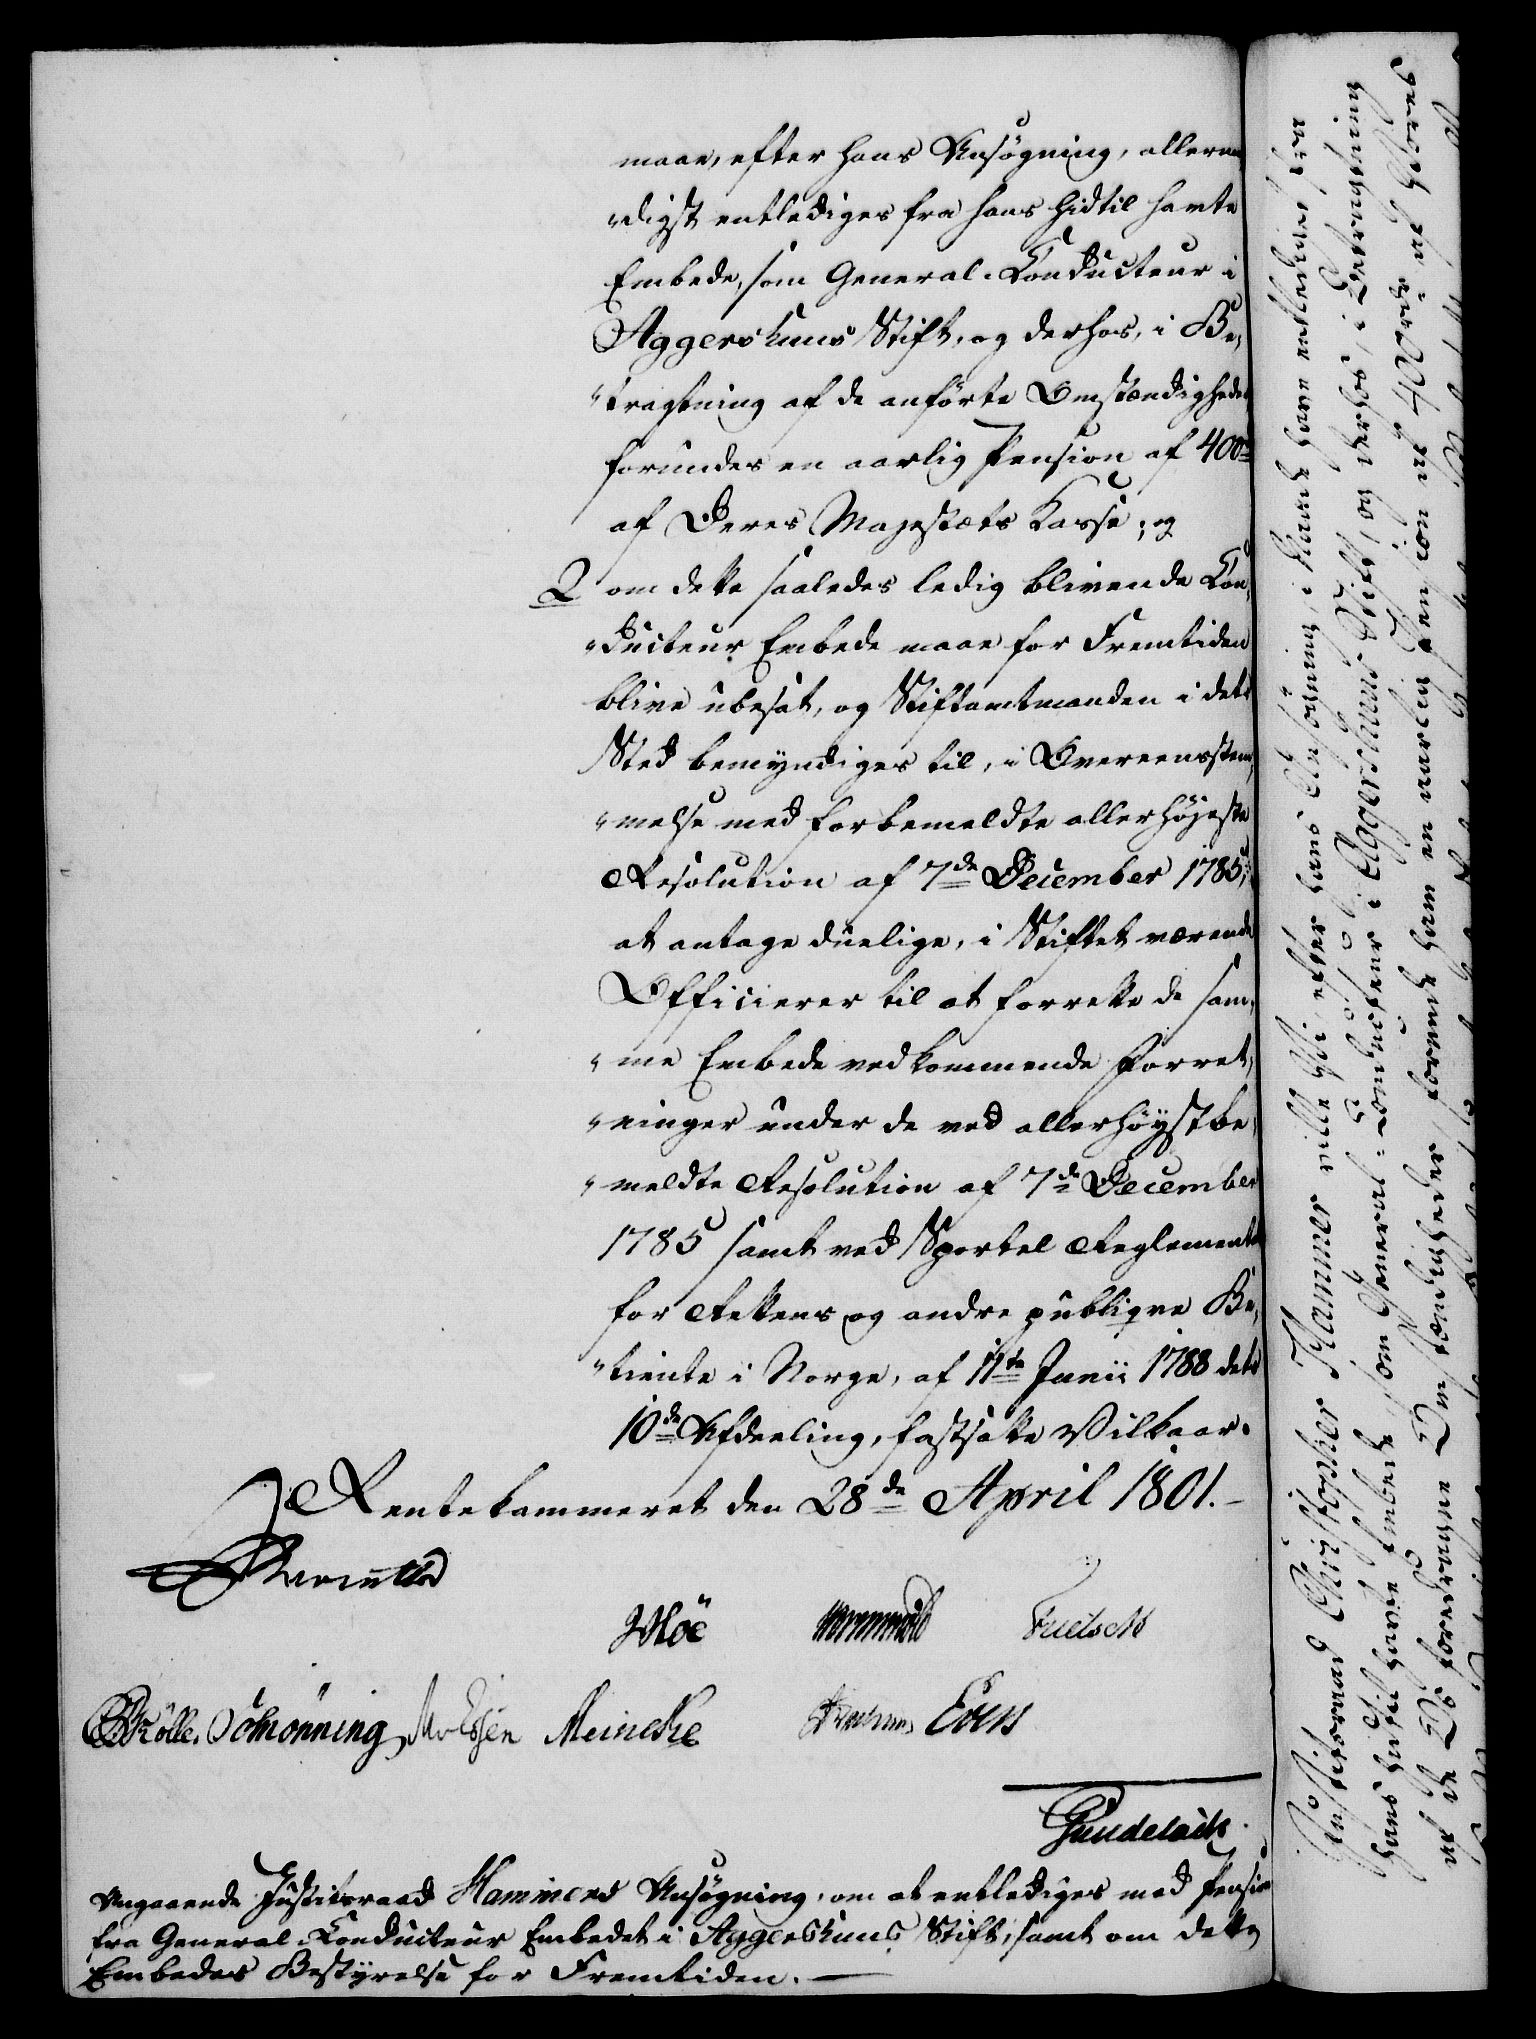 maae, efter hans Ansøgning, allernaa
"digst entlediges fra hans hidtil havte
Embede, som General-Conducteur i
Aggershuus Stift, og derhos, i Be,
"tragtning af de anførte Omstændigheder
forundes en aarlig Pension af 400 rd
af Deres Majestæts Kasse; og
2 om dette saaledes ledig blivende Con,
"ducteur Embede maae for Fremtiden
blive ubesat, og Stiftamtmanden i dets
Sted bemyndiges til, i Overeensstem,
"melse med forbemeldte allerhøjeste
Resolution af 7de December 1785,
at antage duelige, i Stiftet værende
Officierer til at forrette de sam,
"me Embede vedkommende Forret,
"ninger under de ved allerhøystbe,
"meldte Resolution af 7de December
1785 samt ved Sportel Reglementet
for Rettens og andre publiqve Be,
"tiente i Norge, af 11te Junii 1788 dets
10de Afdeeling, fastsatte Vilkaar.
Rentekammeret den 28de April 1801.
Reventlow
Møe Wormskiold Fuetsch
Rølle. Schønning MvEssen Meincke Evers
Gundelach.
Angaaende Justitsraad Hammers Ansøgning, om at entlediges med Pension
fra General-Conducteur Embedet i Aggershuus Stift, samt om dette
Embedes Bestyrelse for Fremtiden.
Justitsraad Christopher Hammer ville Vi, efter hans Ansøgning, i Naade have entlediget fra
hans hidtil havte Embede, som General-Conducteur i Aggershuus Stift, og derhos, i Betragtning
af de Os foredragne Omstændigheder, forunde ham en aarlig Pension af 400 rd af Vores